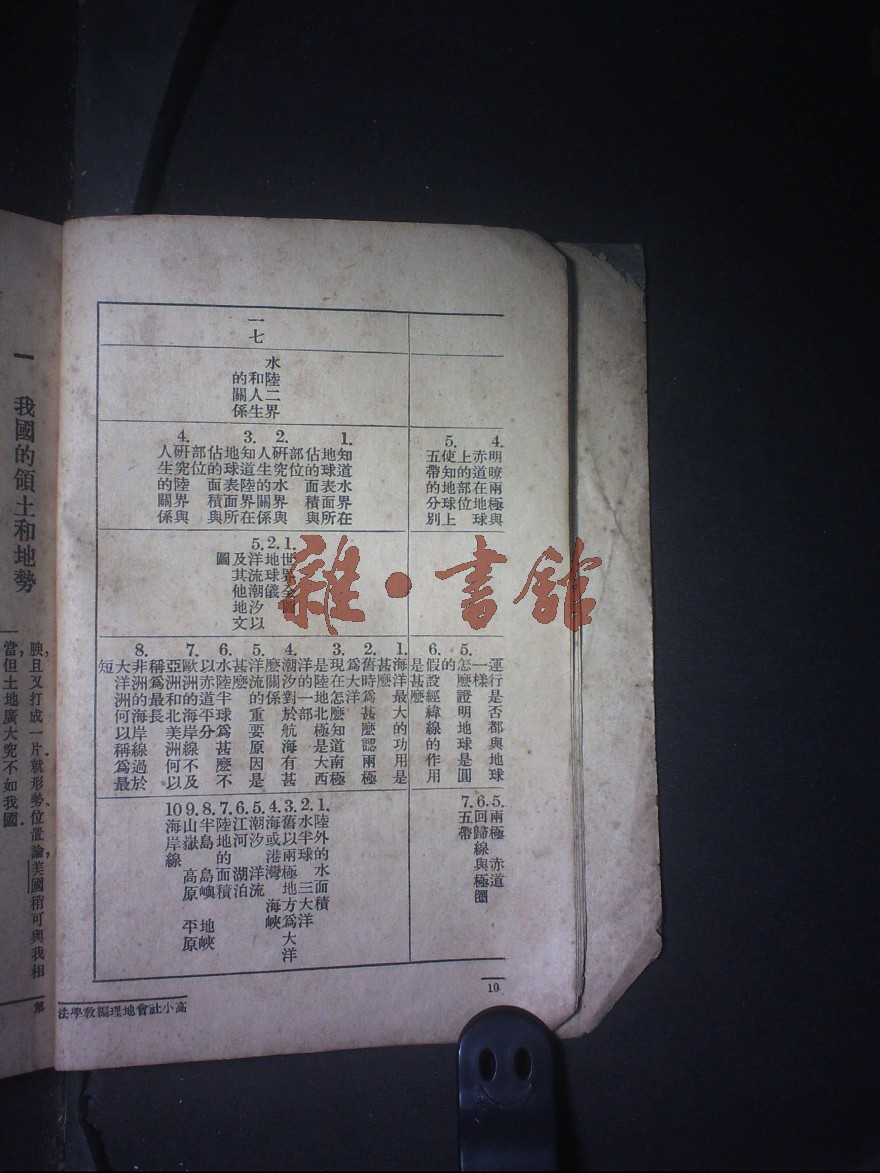 4.明瞭兩極與
赤道在地球
上的部位
5.使知地球上
五帶的分別
5.運行是否都與地球
一樣
怎麼證明地球是圓
的
6.假設經緯線的作用
是甚麼
5.兩極 赤道
6.回歸線與極圈
7.五帶
一七
水陸二界
和人生
的關係
1.知道水界在
地球表面所
佔的面積與
部位
2.研究水界與
人生的關係
3.知道陸界在
地球表面所
佔的面積與
部位
4.研究陸界與
人生的關係
1.世界全圖
2.地球儀
5.洋流潮汐以
及其他地文
圖
1.海洋最大的功用是
甚麼
2.舊時爲甚麼認兩極
爲大洋
3.現在怎麼知道南極
是陸地北極是大西
洋的一部
4.潮汐對於航海有甚
麼關係
5.洋流的重要原因是
甚麼
6.水陸半球爲甚麼不
以赤道平分
7.歐洲的海岸線不及
亞洲和北美洲何以
稱爲最長
8.非洲的海岸線過於
大洋洲何以稱爲最
短
1.陸外的水面積
2.水半球 三大洋
3.舊以兩極地方爲大洋
4.海或港灣 海峽
5.潮汐 洋流
6.江河 湖泊
7.陸地的面積
8.半島 島嶼 地峽
9.山嶽 高原 平原
10海岸線
10
高小社會地理編教學法
一 我國的領土和地勢
腴,且又打成一片.就形勢、位置論,美國稍可與我相
當,但土地廣大,究不如我國.
第
雜·書館